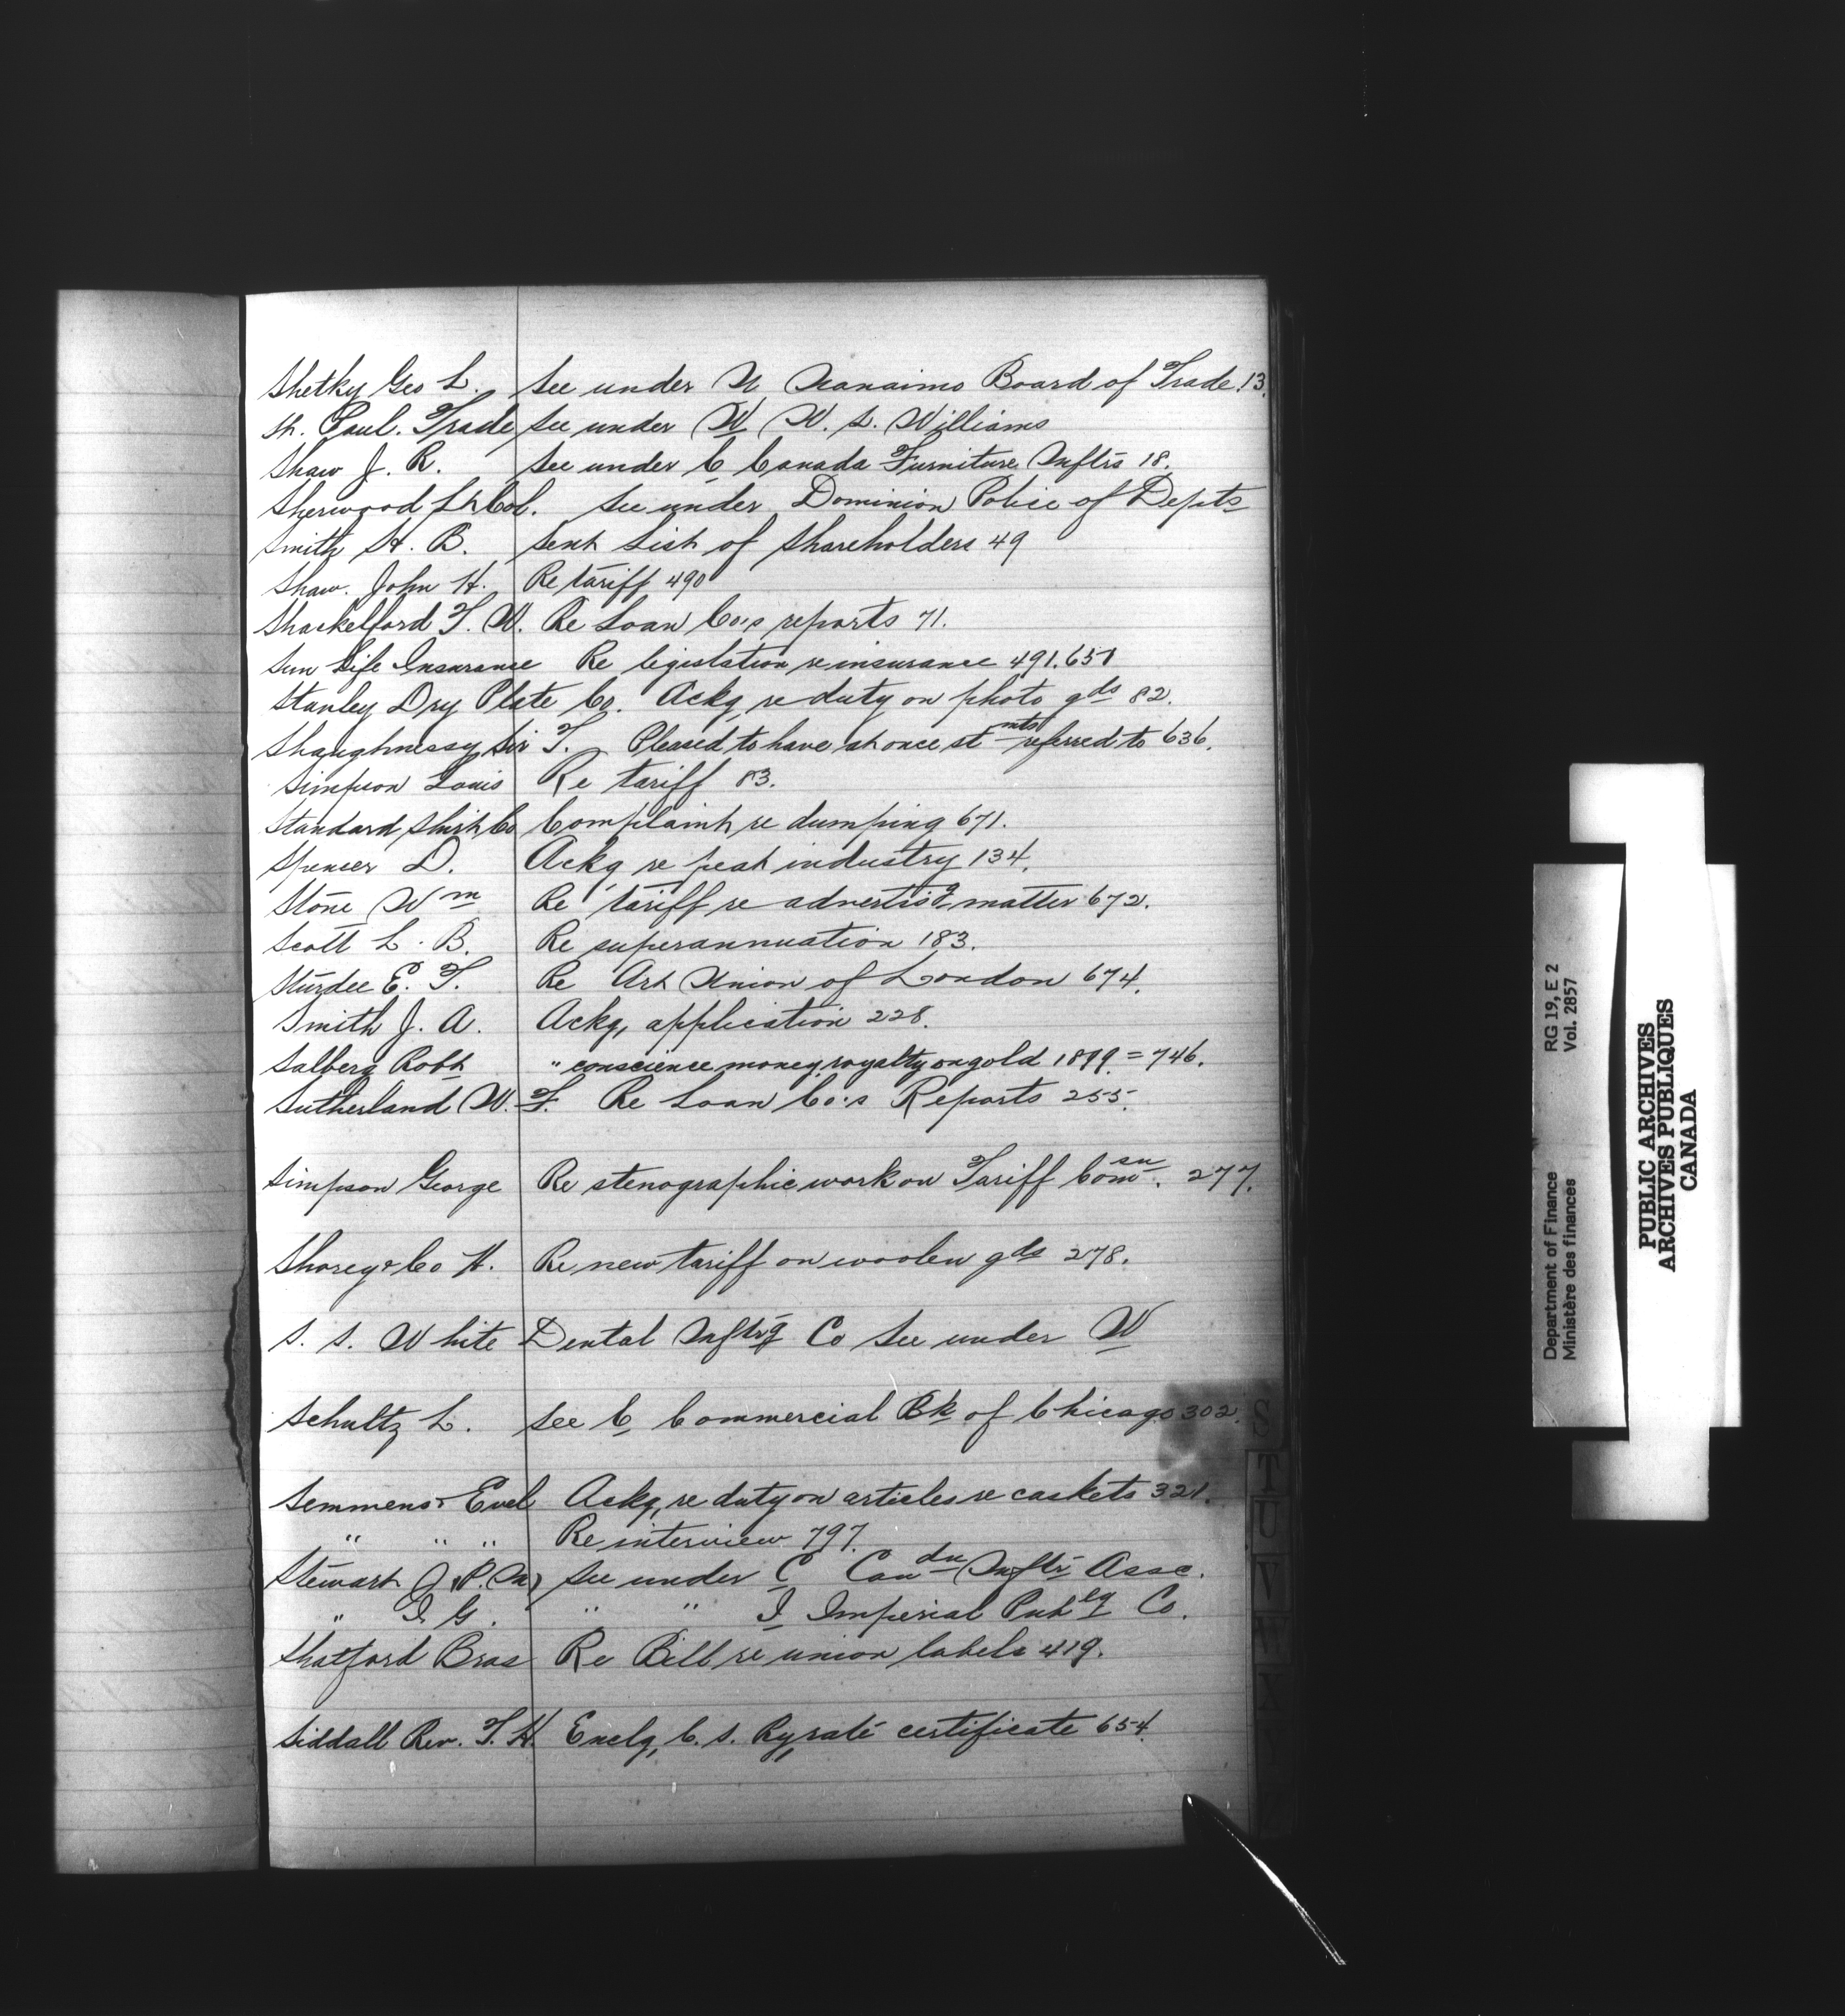 Shetky Geo L. See under N Nanaimo Board of Trade 13.
St. Paul. Trade See under W W. L. Williams
Shaw J. R. See under C Canada Furniture Mnftrs 18.
Sherwood Lt Col. See under Dominion Police of Depts
Smith H. B. Sent List of Shareholders 49
Shaw. John H. Re tariff 490
Shackelford T. W. Re Loan Co's reports 71.
Sun Life Insurance Re legislation re insurance 491.651
Stanley Dry Plate Co. Ackg re duty on photo gds 82.
Shaughnessy Sir T. Pleased to have at once stmts referred to 636.
Simpson Louis Re tariff 83.
Standard Shirt Co Complaint re dumping 671.
Spencer D. Ackg re peat industry 134.
Stone Wm Re tariff re advertisg matter 672.
Scott L. B. Re superannuation 183.
Sturdee E. T. Re Art Union of London 674.
Smith J. A. Ackg, application 228.
Salberg Robt " conscience money royalty on gold 1899 = 746.
Sutherland W. F. Re Loan Co's Reports 255.
Simpson George Re stenographic work on Tariff Comsn. 277.
Shorey & Co H. Re new tariff on woolen gds 278.
S. S. White Dental Mnftrg Co See under W
Schultz L. See C Commercial Bk of Chicago 302.
Semmens & Evel Ackg, re duty on articles re caskets 321.
" " " Re interview 797.
Stewart J. P. M. See under C Candn Mnftrs Assc.
" J. G. " " I Imperial Pubg Co.
Shatford Bros Re Bill re union labels 419.
Siddall Rev. T. H. Enclg, C. S. Ry rate certificate 654.
S
T
U
V
W
X
RG 19, E 2
Vol. 2857
Department of Finance
Ministère des finances
PUBLIC ARCHIVES
ARCHIVES PUBLIQUES
CANADA